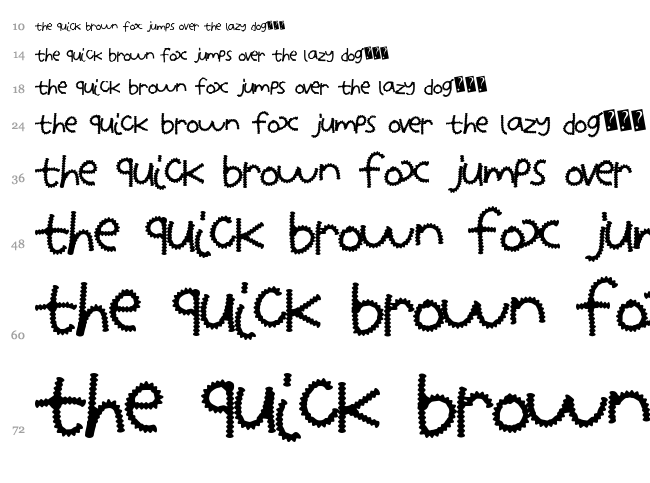 10 the quick brown fox jumps over the lazy dog
14 the quick brown fox jumps over the lazy dog
18 the quick brown fox jumps over the lazy dog
24 the quick brown fox jumps over the lazy dog
36 the quick brown fox jumps over
48 the quick brown fox jur
60 the quick brown fo
72 the quick brown